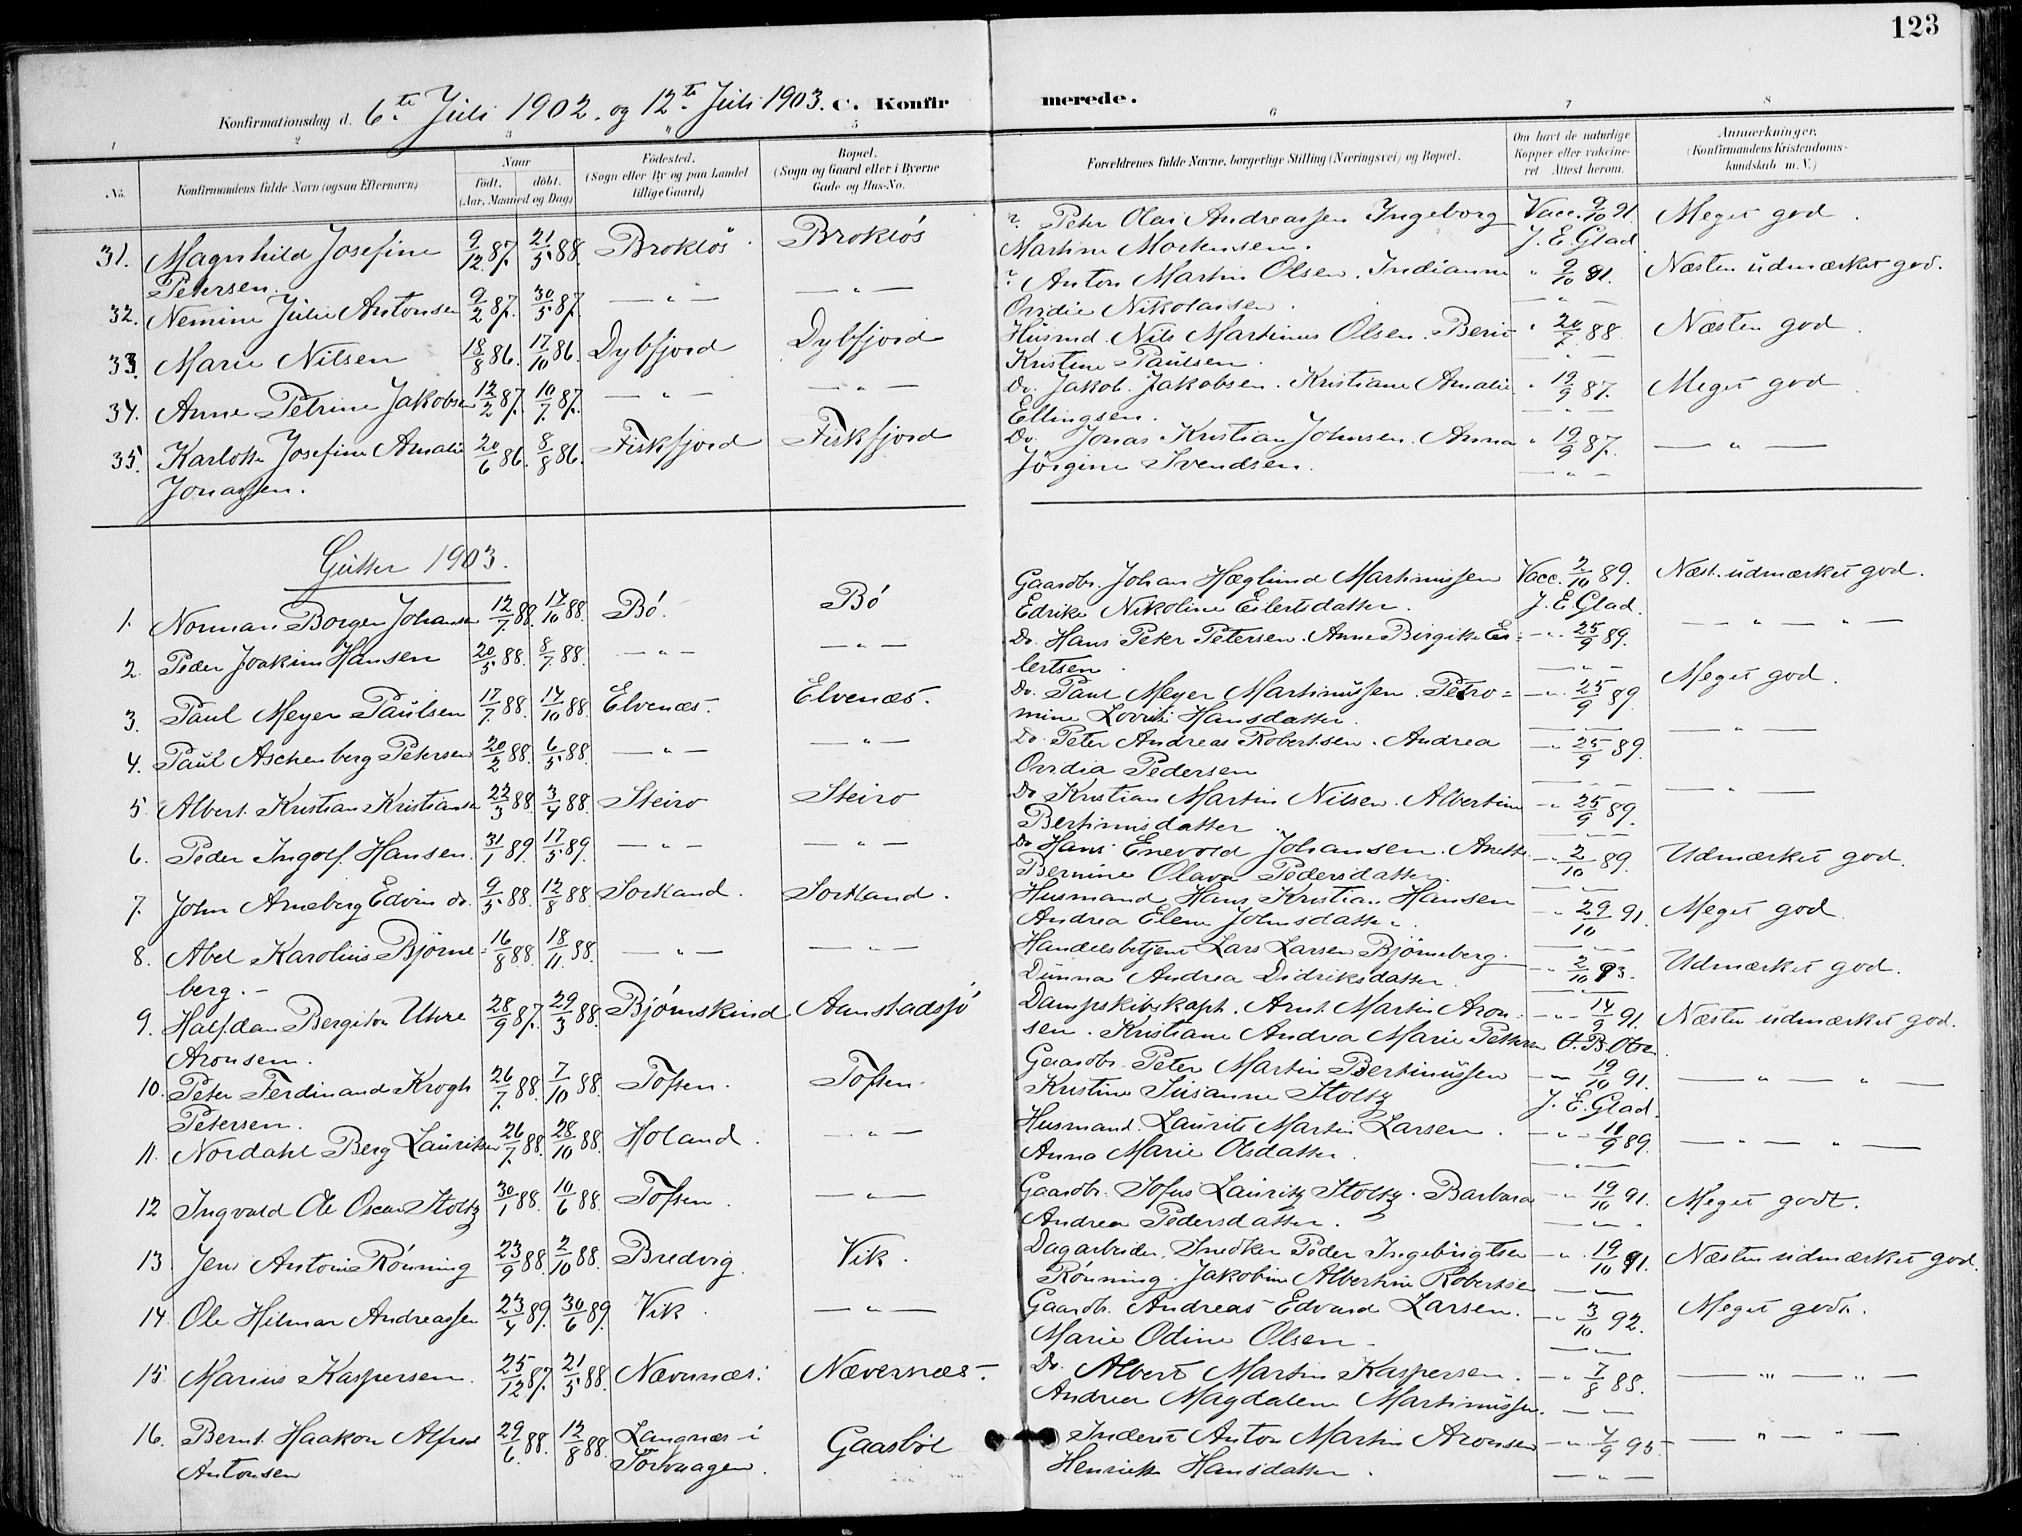 123
Konfirmationsdag d. 6te Juli 1902. og 12te Juli 1903. C. Konfirmerede.
1 2 3 4 5 6 7 8
No. Konfirmandens fulde Navn (ogsaa Efternavn) Naar født. døbt. (Aar, Maaned og Dag) Fødested. (Sogn eller By og paa Landet tillige Gaard) Bopæl. (Sogn og Gaard eller i Byerne Gade og Hus-No. Forældrenes fulde Navne, borgerlige Stilling (Næringsvei) og Bopæl. Om havt de naturlige Kopper eller vakcineret. Attest herom. Anmærkninger. (Konfirmandens Kristendomskundskab m. V.)
31. Magnhild Josefine 9/12 87. 21/5 88. Brokløs Brokløs Peter Olai Andreassen Ingeborg Vacc. 9/10 91 Meget god.
Petersen. Martine Mortensen. J. E. Glad
32. Nemine Julie Antonsen 9/2 87. 30/5 87. — " — — " — Anton Martin Olsen. Indianne " 9/10 91. Næsten udmærket god.
Ovidie Nikolaisen. — " —
33. Marie Nilsen 18/8 86. 17/10 86. Dybfjord Dybfjord Husmd. Nils Martinus Olsen. Berit " 20/7 88 Næsten god.
Kristine Paulsen. — " —
34. Anne Petrine Jakobsen 12/2 87. 10/7 87. — " — — " — Do. Jakob Jakobsen. Kristiane Amalie " 19/9 87. Meget god
Ellingsen. — " —
35. Karlotte Josefine Amalie 20/6 86. 8/8 86. Fiskfjord Fiskfjord Do. Jonas Kristian Johnsen. Anna " 19/9 87. — " —
Jonassen. Jørgine Svendsen. — " —
Gutter 1903.
1. Norman Borgen Johansen 12/7 88. 14/10 88. Bø. Bø Gaardbr. Johan Høglund Martinussen Vacc. 2/10 89. Næst. udmærket god.
Edrike Nikoline Eilertsdatter. J. E. Glad.
2. Peder Joakim Hansen 20/5 88. 8/7 88. — " — — " — Do. Hans Peter Petersen. Anne Birgitte Ei= — " 25/9 89. — " — " —
lertsen. — " —
3. Paul Meyer Paulsen 17/7 88. 14/10 88. Elvenæs. Elvenæs. Do. Paul Meyer Martinussen. Petro= — " 25/9 89 Meget god.
mine Lovise Hansdatter. — " —
4. Paul Aschenberg Petersen 20/2 88. 6/5 88. — " — — " — Do. Peter Andreas Robertsen. Andrea — " 25/9 89. — " —
Ovidia Pedersen — " —
5. Albert Kristian Kristiansen 22/3 88. 3/4 88. Steiro Steiro Do. Kristian Martin Nilsen. Albertine — " 25/9 89. — " —
Bertinusdatter — " —
6. Peder Ingolf Hansen. 31/1 89. 17/5 89. — " — — " — Do. Hans Enevold Johansen. Anette — " 2/10 89. Udmærket god.
Bernine Olava Pedersdatter. — " —
7. John Arneberg Edvin do. 9/5 88. 12/8 88. Sortland. Sortland. Husmand Hans Kristian Hansen — " 29/10 91. Meget god.
Andrea Elene Johnsdatter. — " —
8. Abel Karolius Bjørne= 16/8 88. 18/11 88. — " — — " — Handelsbetjent Lars Larsen Bjørneberg. — " 2/10 93. Udmærket god.
berg. — Dunna Andrea Didriksdatter — " —
9. Halfdan Bergiton Uhre 28/9 87. 29/3 88. Bjørnskind Aanstadsjø Dampskibskapt. Arnt Martin Aron= — " 14/9 91. Næsten udmærket god.
Aronsen. sen. Kristiane Andrea Marie Pettersen O. B. Olsen.
10. Peter Ferdinand Krogh 26/7 88. 7/10 88. Tofsen. Tofsen. Gaardbr. Peter Martin Bertinussen — " 19/10 91. — " — " —
Petersen. Kristine Susanne Stoltz J. E. Glad.
11. Nordahl Berg Lauritsen 26/7 88. 28/10 88. Holand. — " — Husmand. Laurits Martin Larsen. — " 11/9 89. — " — " —
Anna Marie Olsdatter. — " —
12 Ingvald Ole Oscar Stoltz 30/1 88. 10/6 88. Tofsen. — " — Gaardbr. Sofus Lauritz Stoltz. Barbara — " 19/10 91. Meget godt.
Andrea Pedersdatter. — " —
13. Jens Antonius Rønning 23/9 88. 2/10 88. Bredvig Vik. Dagarbeider, Snedker Peder Ingebrigtsen — " 19/10 91. Næsten udmærket god.
Rønning. Jakobine Albertine Robertsen — " —
14. Ole Hilmar Andreassen 23/4 89. 30/6 89. Vik. — " — Gaardbr. Andreas Edvard Larsen. — " 3/10 92. Meget godt.
Marie Odine Olsen — — " —
15. Marius Kaspersen. 25/12 87. 21/5 88. Nævernæs. Nævernæs. Do. Albert Martin Kaspersen. — " 7/8 88. — " — " —
Andrea Magdalene Martinussen. — " —
16. Bernt Haakon Alfred 29/6 88. 12/8 88. Langnæs i Gaasbøl Inderst Anton Martin Aronsen — " 4/9 95. — " — " —
Antonsen Torvaagen. Henriette Hansdatter. — " —